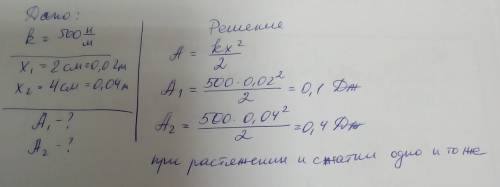 Дано:
k = 500 н/м
x₁ = 2 см = 0,02м
x₂ = 4 см = 0,04м
A₁ - ?
A₂ - ?
Решение
A = kx²/2
A₁ = 500·0,02²/2 = 0,1 Дж
A₂ = 500·0,04²/2 = 0,4 Дж
при растяжении и сжатии одно и тоже